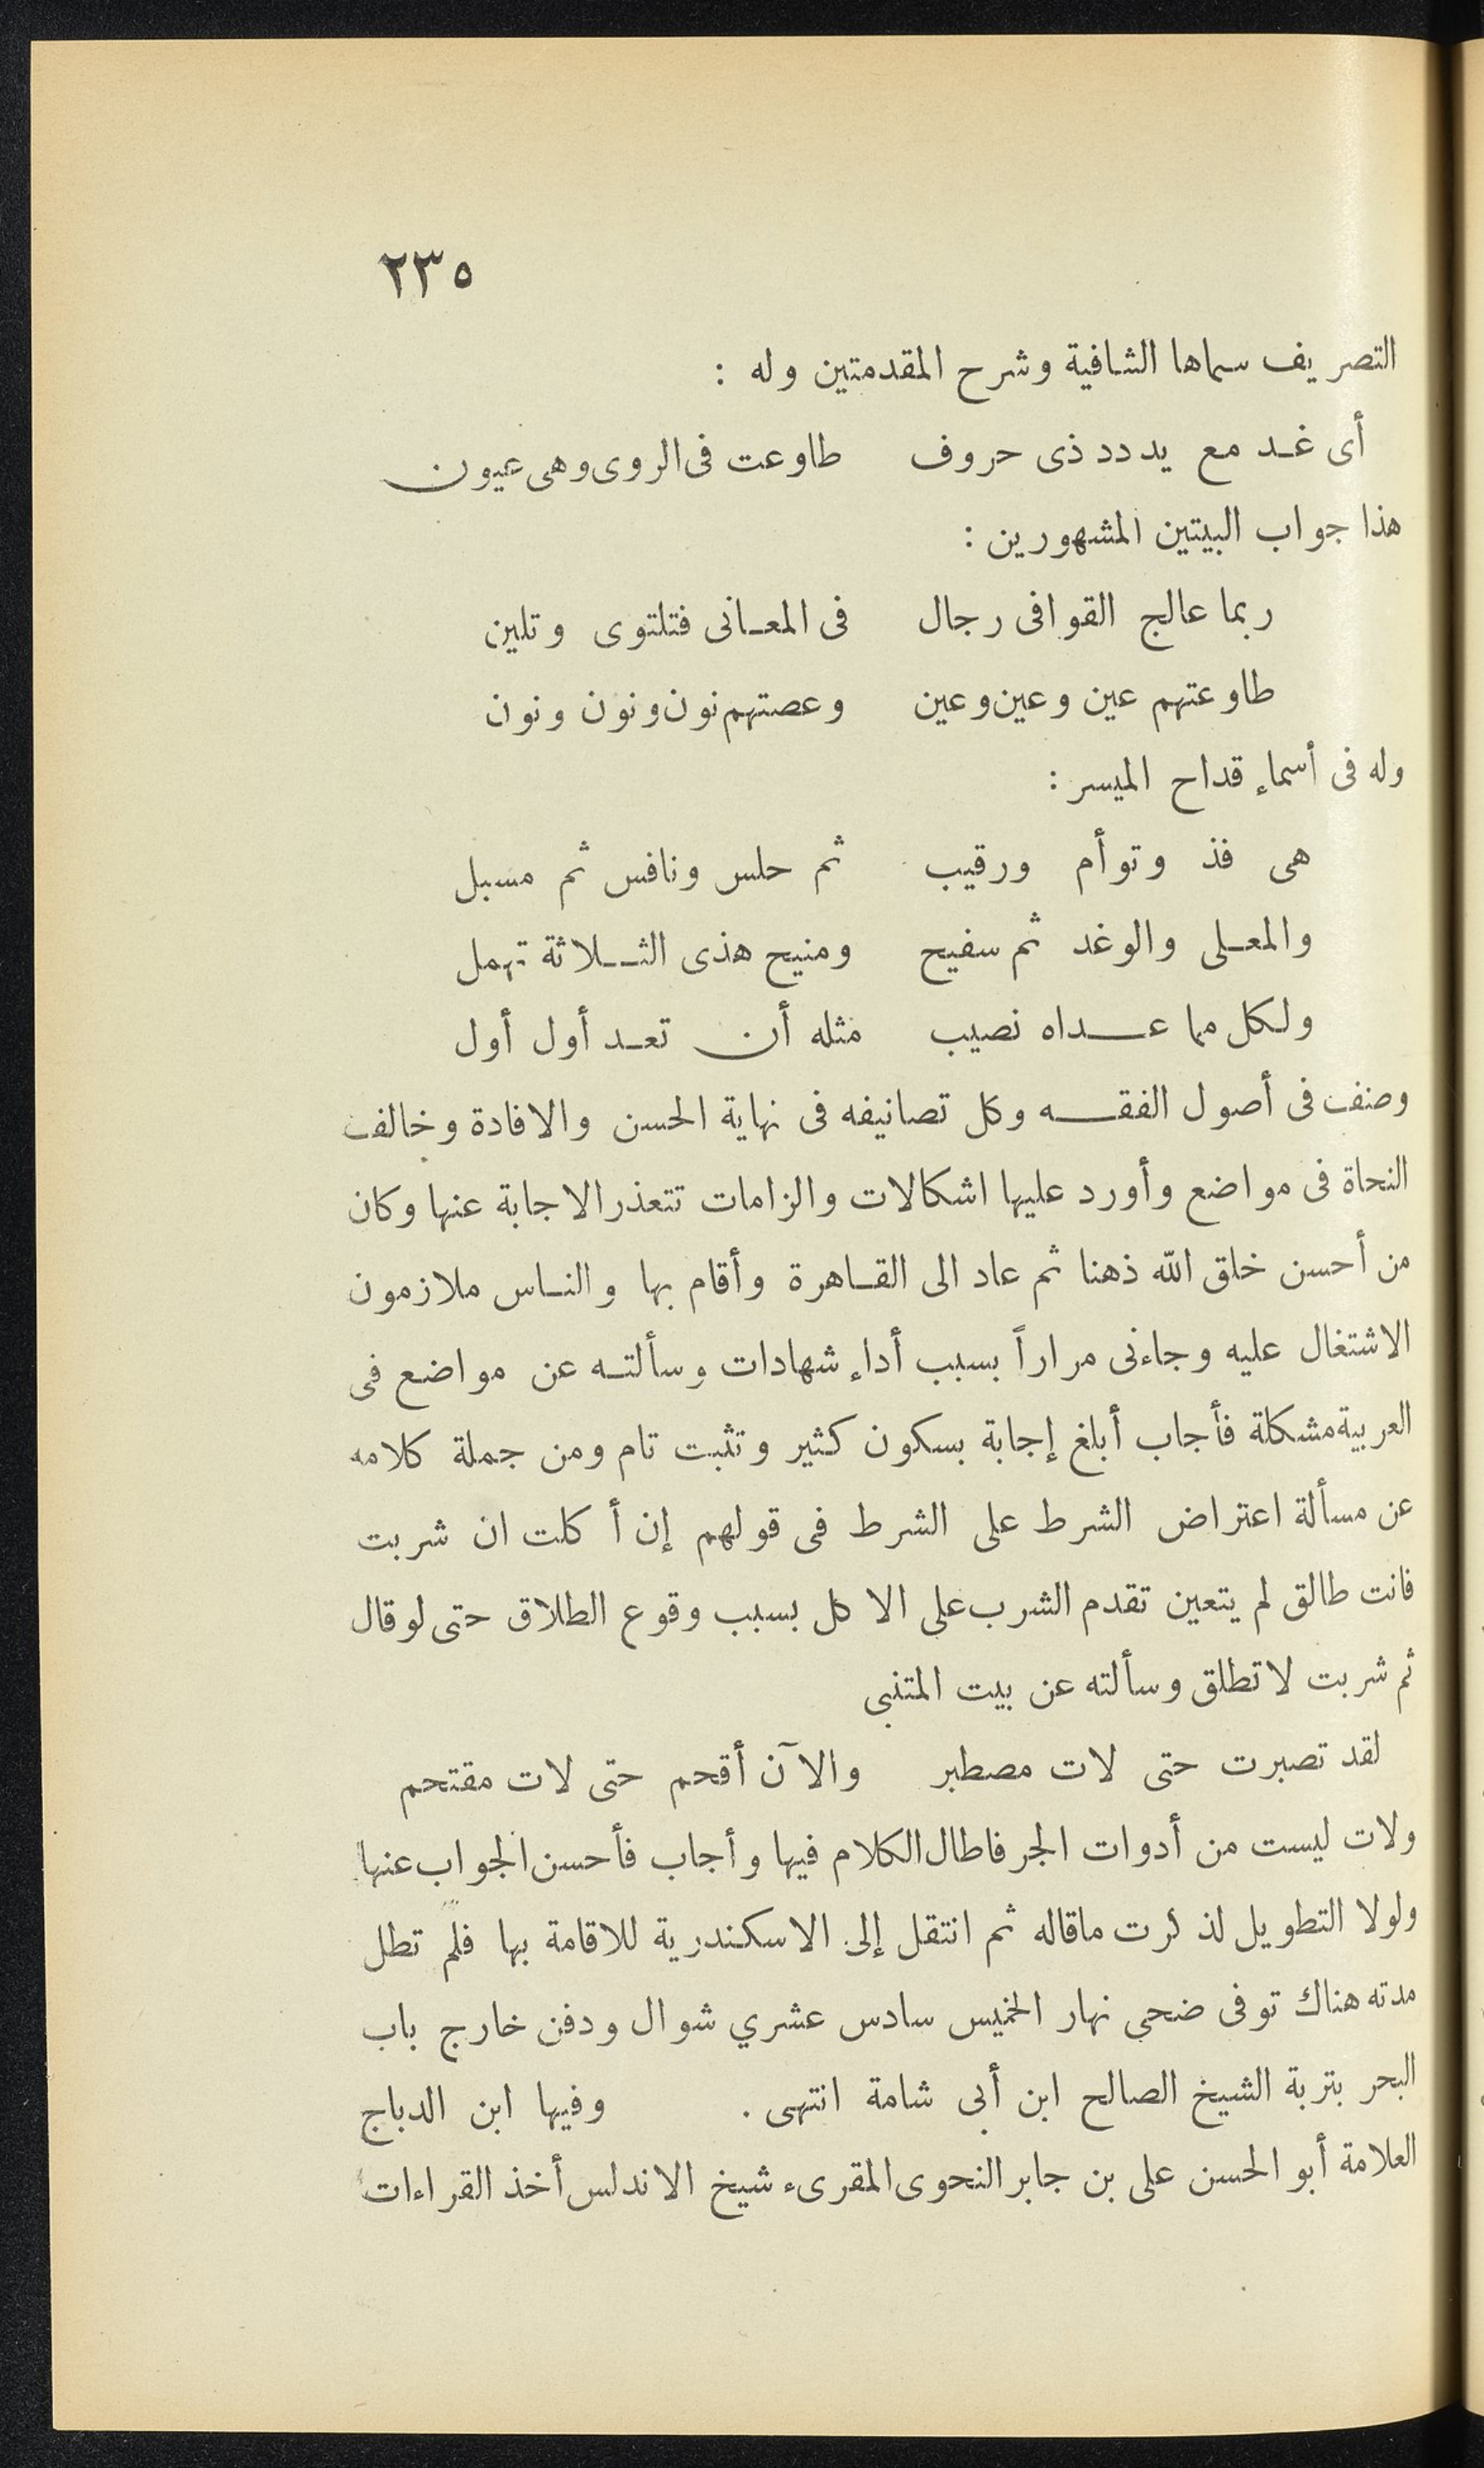 ٢٣٥
التصريف سماها الشافية وشرح المقدمتين وله :
أى غد مع يد دد ذى حروف طاوعت فى الروى وهى عيون
هذا جواب البيتين المشهورين :
ربما عالج القوافى رجال فى المعانى فتلتوى وتلين
طاوعتهم عين وعين وعين وعصتهم نون ونون ونون
وله فى أسماء قداح الميسر :
هى فذ وتوأم ورقيب ثم حلس ونافس ثم مسبل
والمعلى والوغد ثم سفيح ومنيح هذى الثلاثة تهمل
ولكل مما عداه نصيب مثله أن تعد أول أول
وصنف فى أصول الفقه وكل تصانيفه فى نهاية الحسن والافادة وخالف
النحاة فى مواضع وأورد عليها اشكالات والزامات تتعذر الاجابة عنها وكان
من أحسن خلق الله ذهنا ثم عاد الى القاهرة وأقام بها والناس ملازمون
الاشتغال عليه وجاءنى مراراً بسبب أداء شهادات وسألته عن مواضع فى
العربية مشكلة فأجاب أبلغ إجابة بسكون كثير وتثبت تام ومن جملة كلامه
عن مسألة اعتراض الشرط على الشرط فى قولهم إن أكلت ان شربت
فانت طالق لم يتعين تقدم الشرب على الاكل بسبب وقوع الطلاق حتى لو قال
ثم شربت لا تطلق وسألته عن بيت المتنبى
لقد تصبرت حتى لات مصطبر والآن أقحم حتى لات مقتحم
ولات ليست من أدوات الجر فاطال الكلام فيها وأجاب فأحسن الجواب عنها
ولولا التطويل لذكرت ماقاله ثم انتقل إلى الاسكندرية للاقامة بها فلم تطل
مدته هناك توفى ضحى نهار الخميس سادس عشري شوال ودفن خارج باب
البحر بتربة الشيخ الصالح ابن أبى شامة انتهى . وفيها ابن الدباج
العلامة أبو الحسن على بن جابر النحوى المقرىء شيخ الاندلس أخذ القراءات